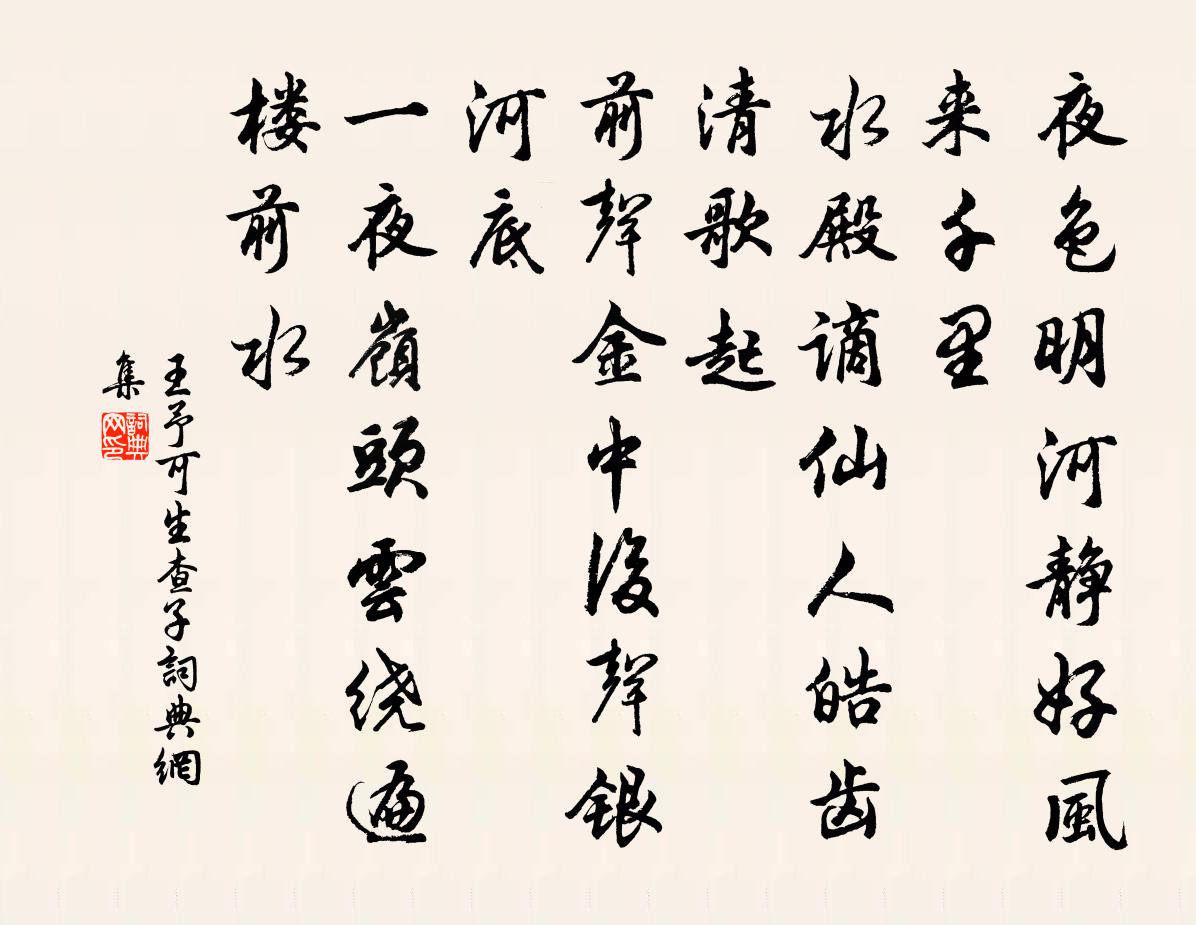 夜色明河静好風
来千里
水殿謫仙人皓齿
清歌起
前聲金中後聲銀
河底
一夜嶺頭雲绕遍
楼前水
王予可生查子詞典網
集
詞典
网印